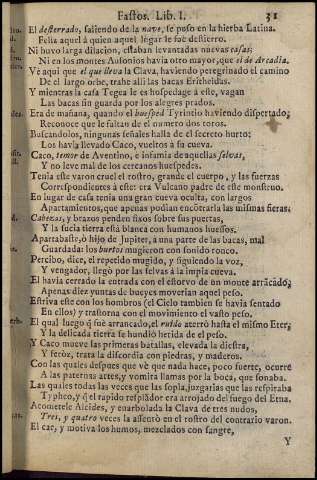 Fastos. Lib. I. 31
El desterrado, saliendo de la nave, se puso en la hierba Latina.
Felix aquel à quien aquel lugar le fuè destierro.
Ni huvo larga dilacion, estaban levantadas nuevas casas;
Ni en los montes Ausonios havia otro mayor, que el de Arcadia.
Vè aqui que el que lleva la Clava, haviendo peregrinado el camino
De el largo orbe, trahe allì las bacas Eritheidas.
Y mientras la casa Tegea le es hospedage à este, vagan
Las bacas sin guarda por los alegres prados.
Era de mañana, quando el huesped Tyrintio haviendo dispertado,
Reconoce que le faltan de el numero dos toros.
Buscandolos, ningunas señales halla de el secreto hurto;
Los havia llevado Caco, vueltos à su cueva.
Caco, temor de Aventino, è infamia de aquellas selvas,
Y no leve mal de los cercanos huespedes.
Tenia este varon cruel el rostro, grande el cuerpo, y las fuerzas
Correspondientes à este: era Vulcano padre de este monstruo.
En lugar de casa tenia una gran cueva oculta, con largos
Apartamientos, que apenas podian encõtrarla las mismas fieras;
Cabezas, y brazos penden fixos sobre sus puertas,
Y la sucia tierra està blanca con humanos huessos.
Apartabaste, ò hijo de Jupiter, à una parte de las bacas, mal
Guardada: los hurtos mugieron con sonido ronco.
Percibo, dice, el repetido mugido, y siguiendo la voz,
Y vengador, llegò por las selvas à la impia cueva.
El havia cerrado la entrada con el estorvo de un monte arrãcado;
Apenas diez yuntas de bueyes moverian aquel peso.
Estriva este con los hombros (el Cielo tambien se havia sentado
En ellos) y trastorna con el movimiento el vasto peso.
El qual luego q̃ fuè arrancado, el ruido aterrò hasta el mismo Eter;
Y la delicada tierra se hundiò herida de el peso.
Y Caco mueve las primeras batallas, elevada la diestra,
Y feròz, trata la discordia con piedras, y maderos.
Con las quales despues que vè que nada hace, poco suerte, ocurre
A las paternas artes, y vomita llamas por la boca, que sonaba.
Las quales todas las veces que las sopla, juzgarias que las respiraba
Typheo, y q̃ el rapido resplãdor era arrojado del fuego del Etna.
Acometele Alcides, y enarbolada la Clava de tres nudos,
Tres, y quatro veces la assentò en el rostro del contrario varon.
El cae, y motiva los humos, mezclados con sangre,
Y